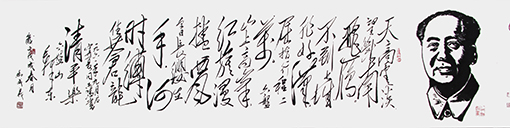 天高雲淡
望斷南
飛雁
不到長城
非好漢
屈指行程二
萬 六盤
山上高峰
紅旗漫
捲西風
今日長纓在
手 何
時縛
住蒼龍
清平樂
六盤山
毛澤東